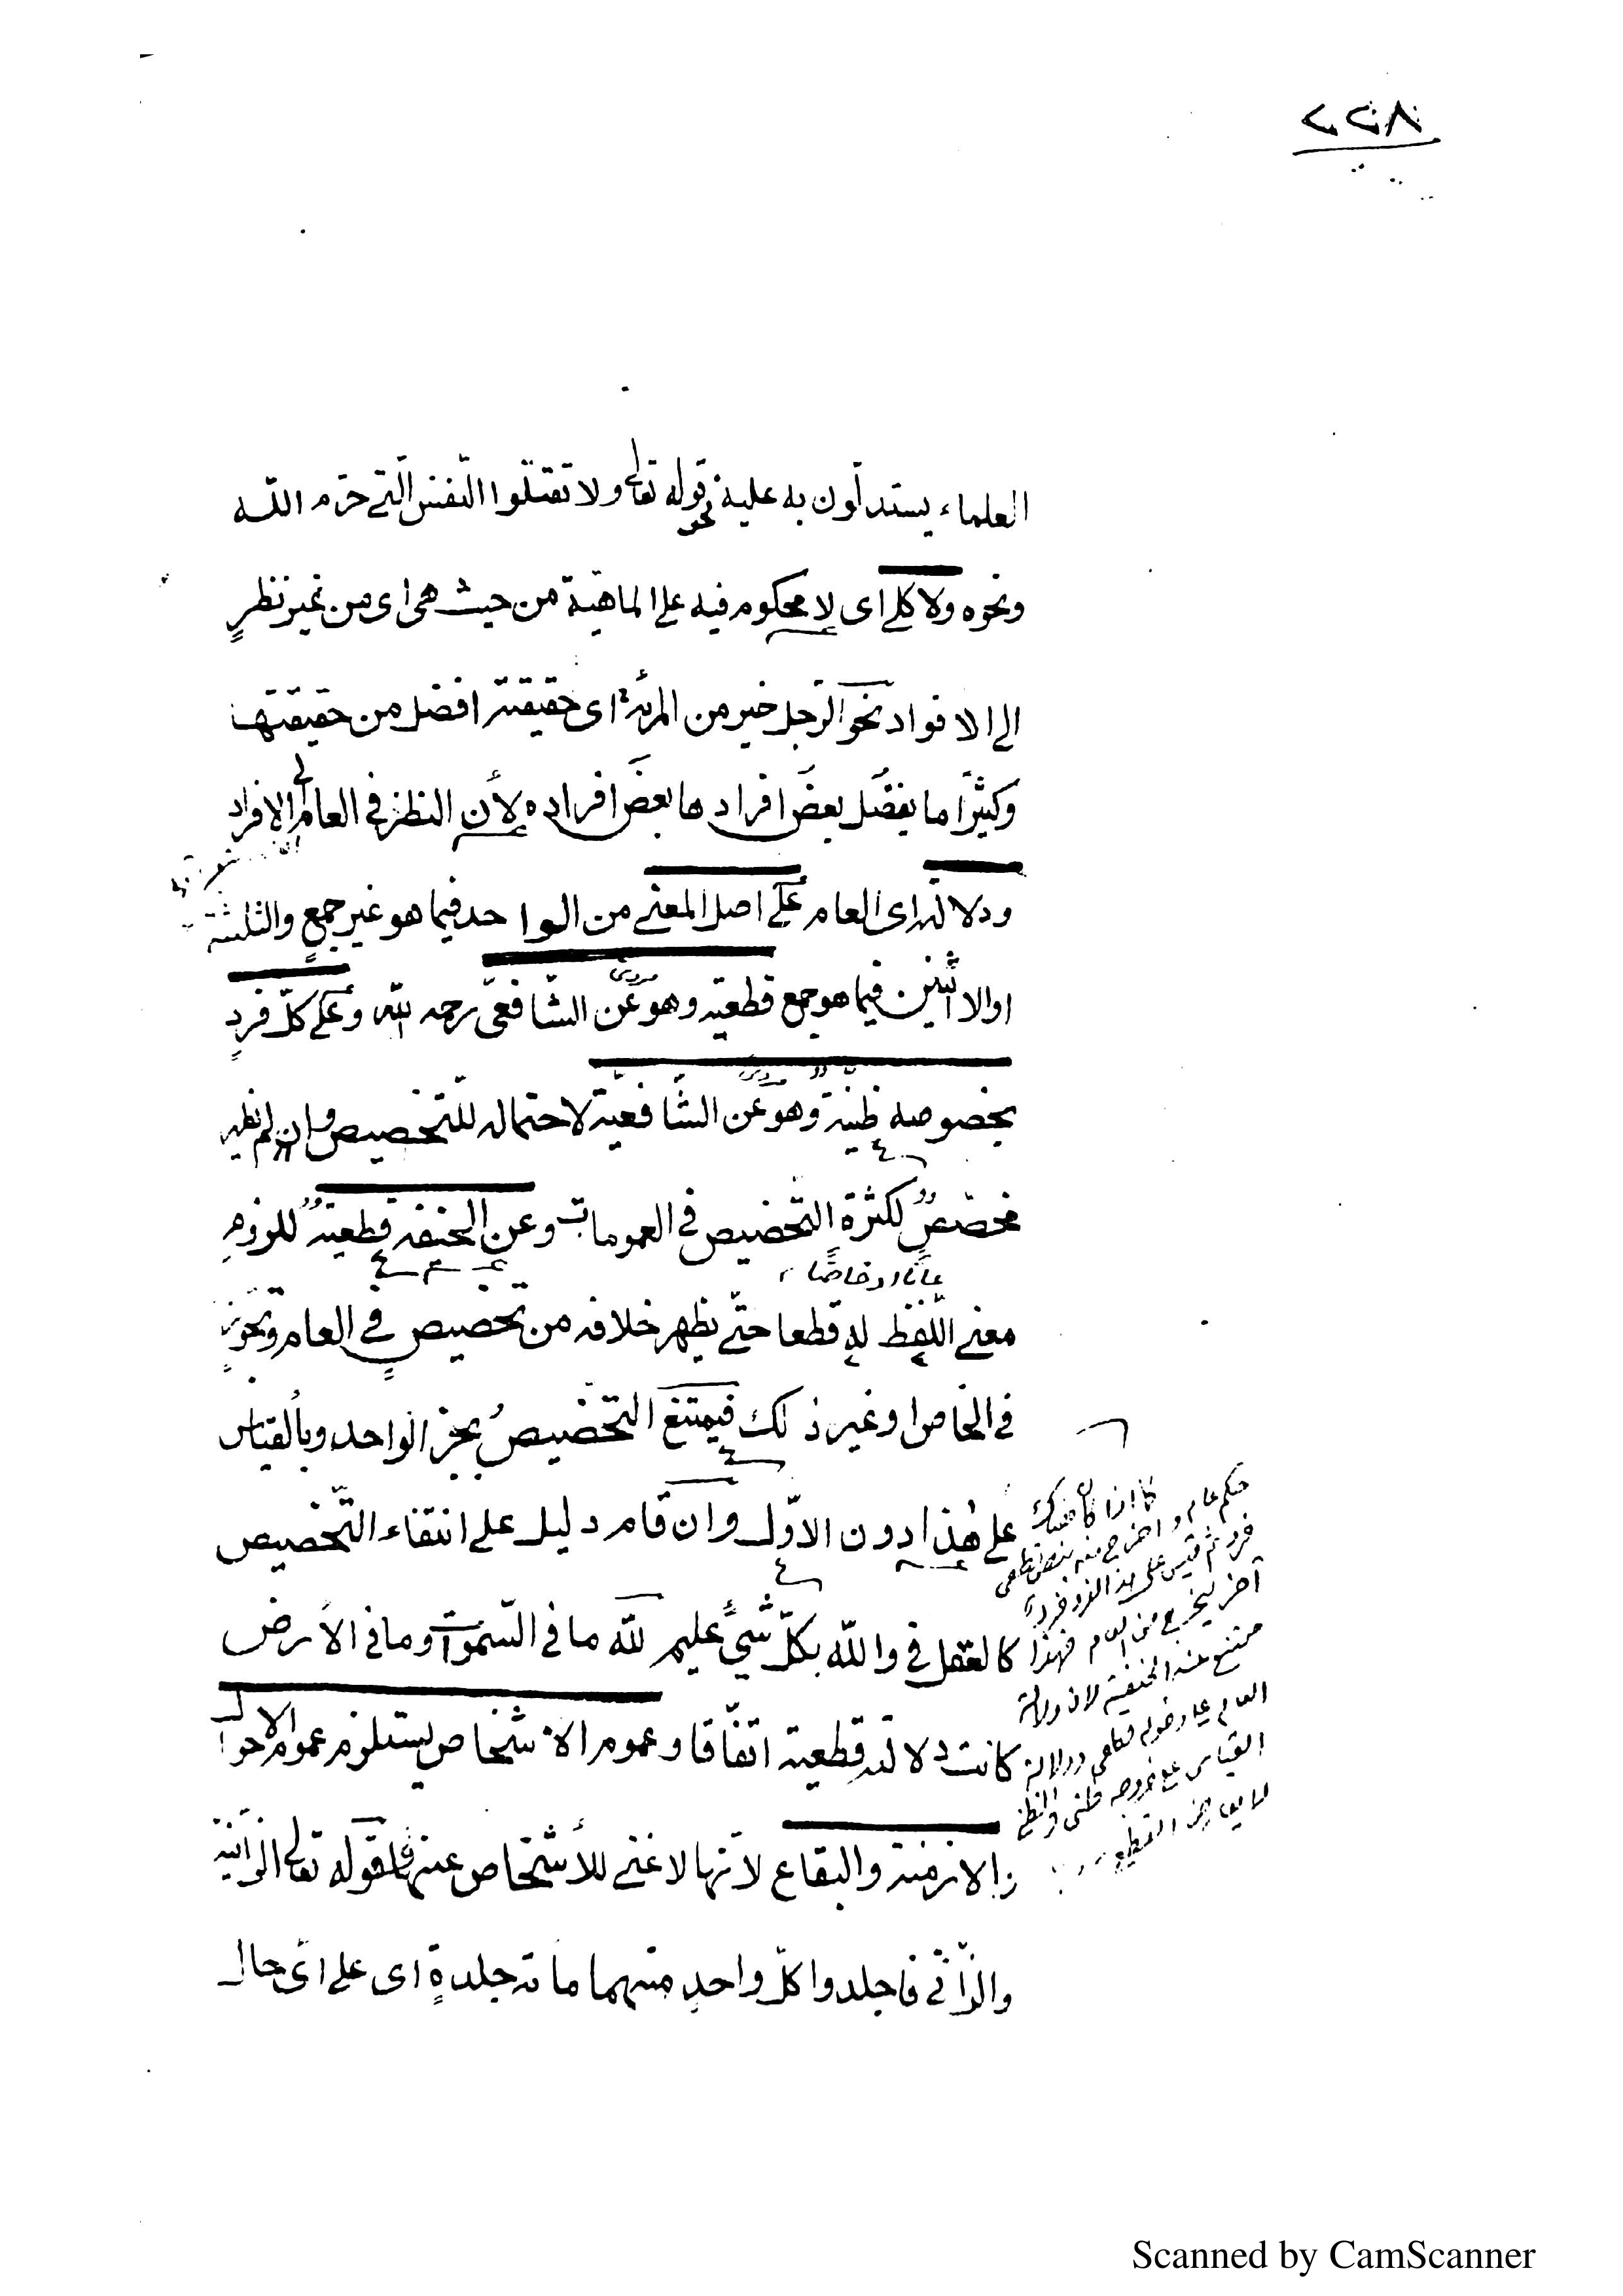 ٢٢٨
العلماء يستدلّون به عليه نحو قوله تعالى ولا تقتلوا النّفس الّتي حرّم اللّه
ونحوه ولا كلي اى لا محكوم فيه على الماهيّة من حيث هى اى من غير نظرٍ
الى الافراد نحو الرّجل خير من المرأة اى حقيقته افضل من حقيقتها
وكثيرًا ما يفضل بعضُ افرادها بعضَ افراده لأن النظر فى العام الى الافراد
ودلالته اى العام على اصل المعنى من الواحد فيما هو غير جمعٍ والثلثة
اوالاثنين فيما هو جمع قطعيّة وهو مروى عن الشّافعىّ رحمه اللّه وعلى كلّ فردٍ
بخصوصه ظنيّة وهو مروى عن الشّافعيّة لاحتماله للتّخصيص وان لم يظهر
مخصّصٌ لكثرة التّخصيص فى العمومات وعن الحنيفة قطعيّة للزوم
عامًّا او خاصًّا
معنى اللّفظ له قطعا حتّى يظهر خلافه من تخصيصٍ فى العام وتجوّزٍ
فى الخاص او غير ذلك فيمتنع التّخصيصُ بخبر الواحد وبالقياس
على هذا دون الاوّل وان قام دليل على انتفاء التّخصيص
كالعقل فى واللّه بكلّ شيءٍ عليم للّه ما فى السّموات وما فى الأرض
كانت دلالته قطعية اتفّاقا وعموم الاشخاص يستلزم عموم الاحوال
والازمنة والبقاع لأنّها لا غنى للأشخاص عنها فقوله تعالى الزّانية
والزّانى فاجلدوا كلّ واحدٍ منهما مائة جلدةٍ اى على اىّ حال
كما اذا كان هناك
حكم عام واخرج منه بنص قطعى
فرد ثم قيس على هذا الفرد فرد
آخر ليخرج من العام فهذا
ممتنع عند الحنفية لان دلالة
العام على دخوله قطعى ودلالة
القياس على خروجه ظنى والظنى
لا يعارض القطعى
Scanned by CamScanner